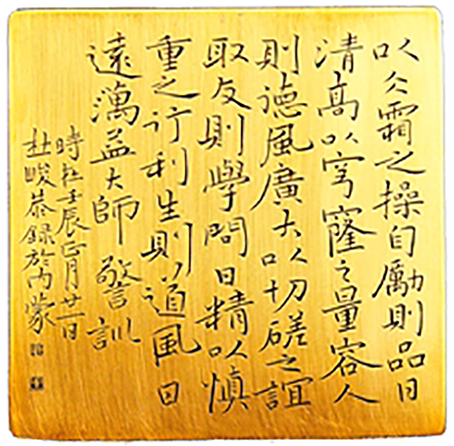 以仌霜之操自勵則品日
清高以穹窿之量容人
則德風廣大以切磋之誼
取友則學問日精以慎
重之行利生則道風日
遠蕅益大師警訓
時在壬辰正月廿一日
杜畯恭錄於內蒙